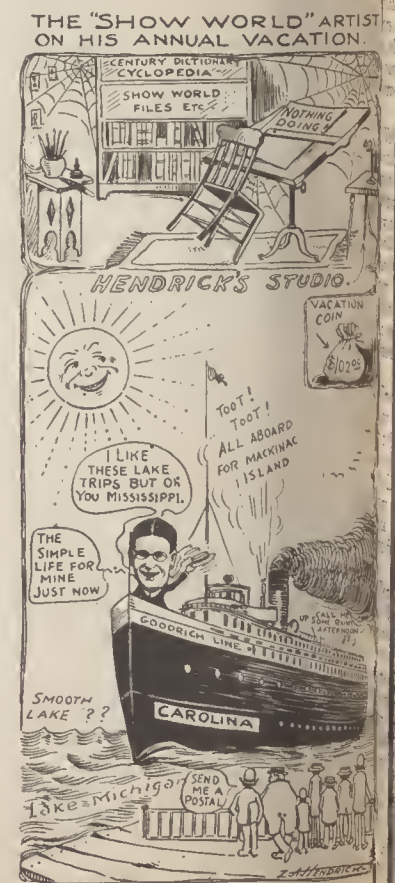 THE "SHOW WORLD" ARTIST
ON HIS ANNUAL VACATION.
CENTURY DICTIONARY
CYCLOPEDIA
SHOW WORLD
FILES ETC
NOTHING
DOING!
HENDRICK'S STUDIO.
VACATION
COIN
TOOT!
TOOT!
ALL ABOARD
FOR MACKINAC
ISLAND
I LIKE
THESE LAKE
TRIPS BUT OH
YOU MISSISSIPPI.
THE
SIMPLE
LIFE FOR
MINE
JUST NOW
CALL ME
UP SOME QUIET
AFTERNOON
GOODRICH LINE
CAROLINA
SMOOTH
LAKE ??
Lake Michigan
SEND
ME A
POSTAL
Z.A. HENDRICK